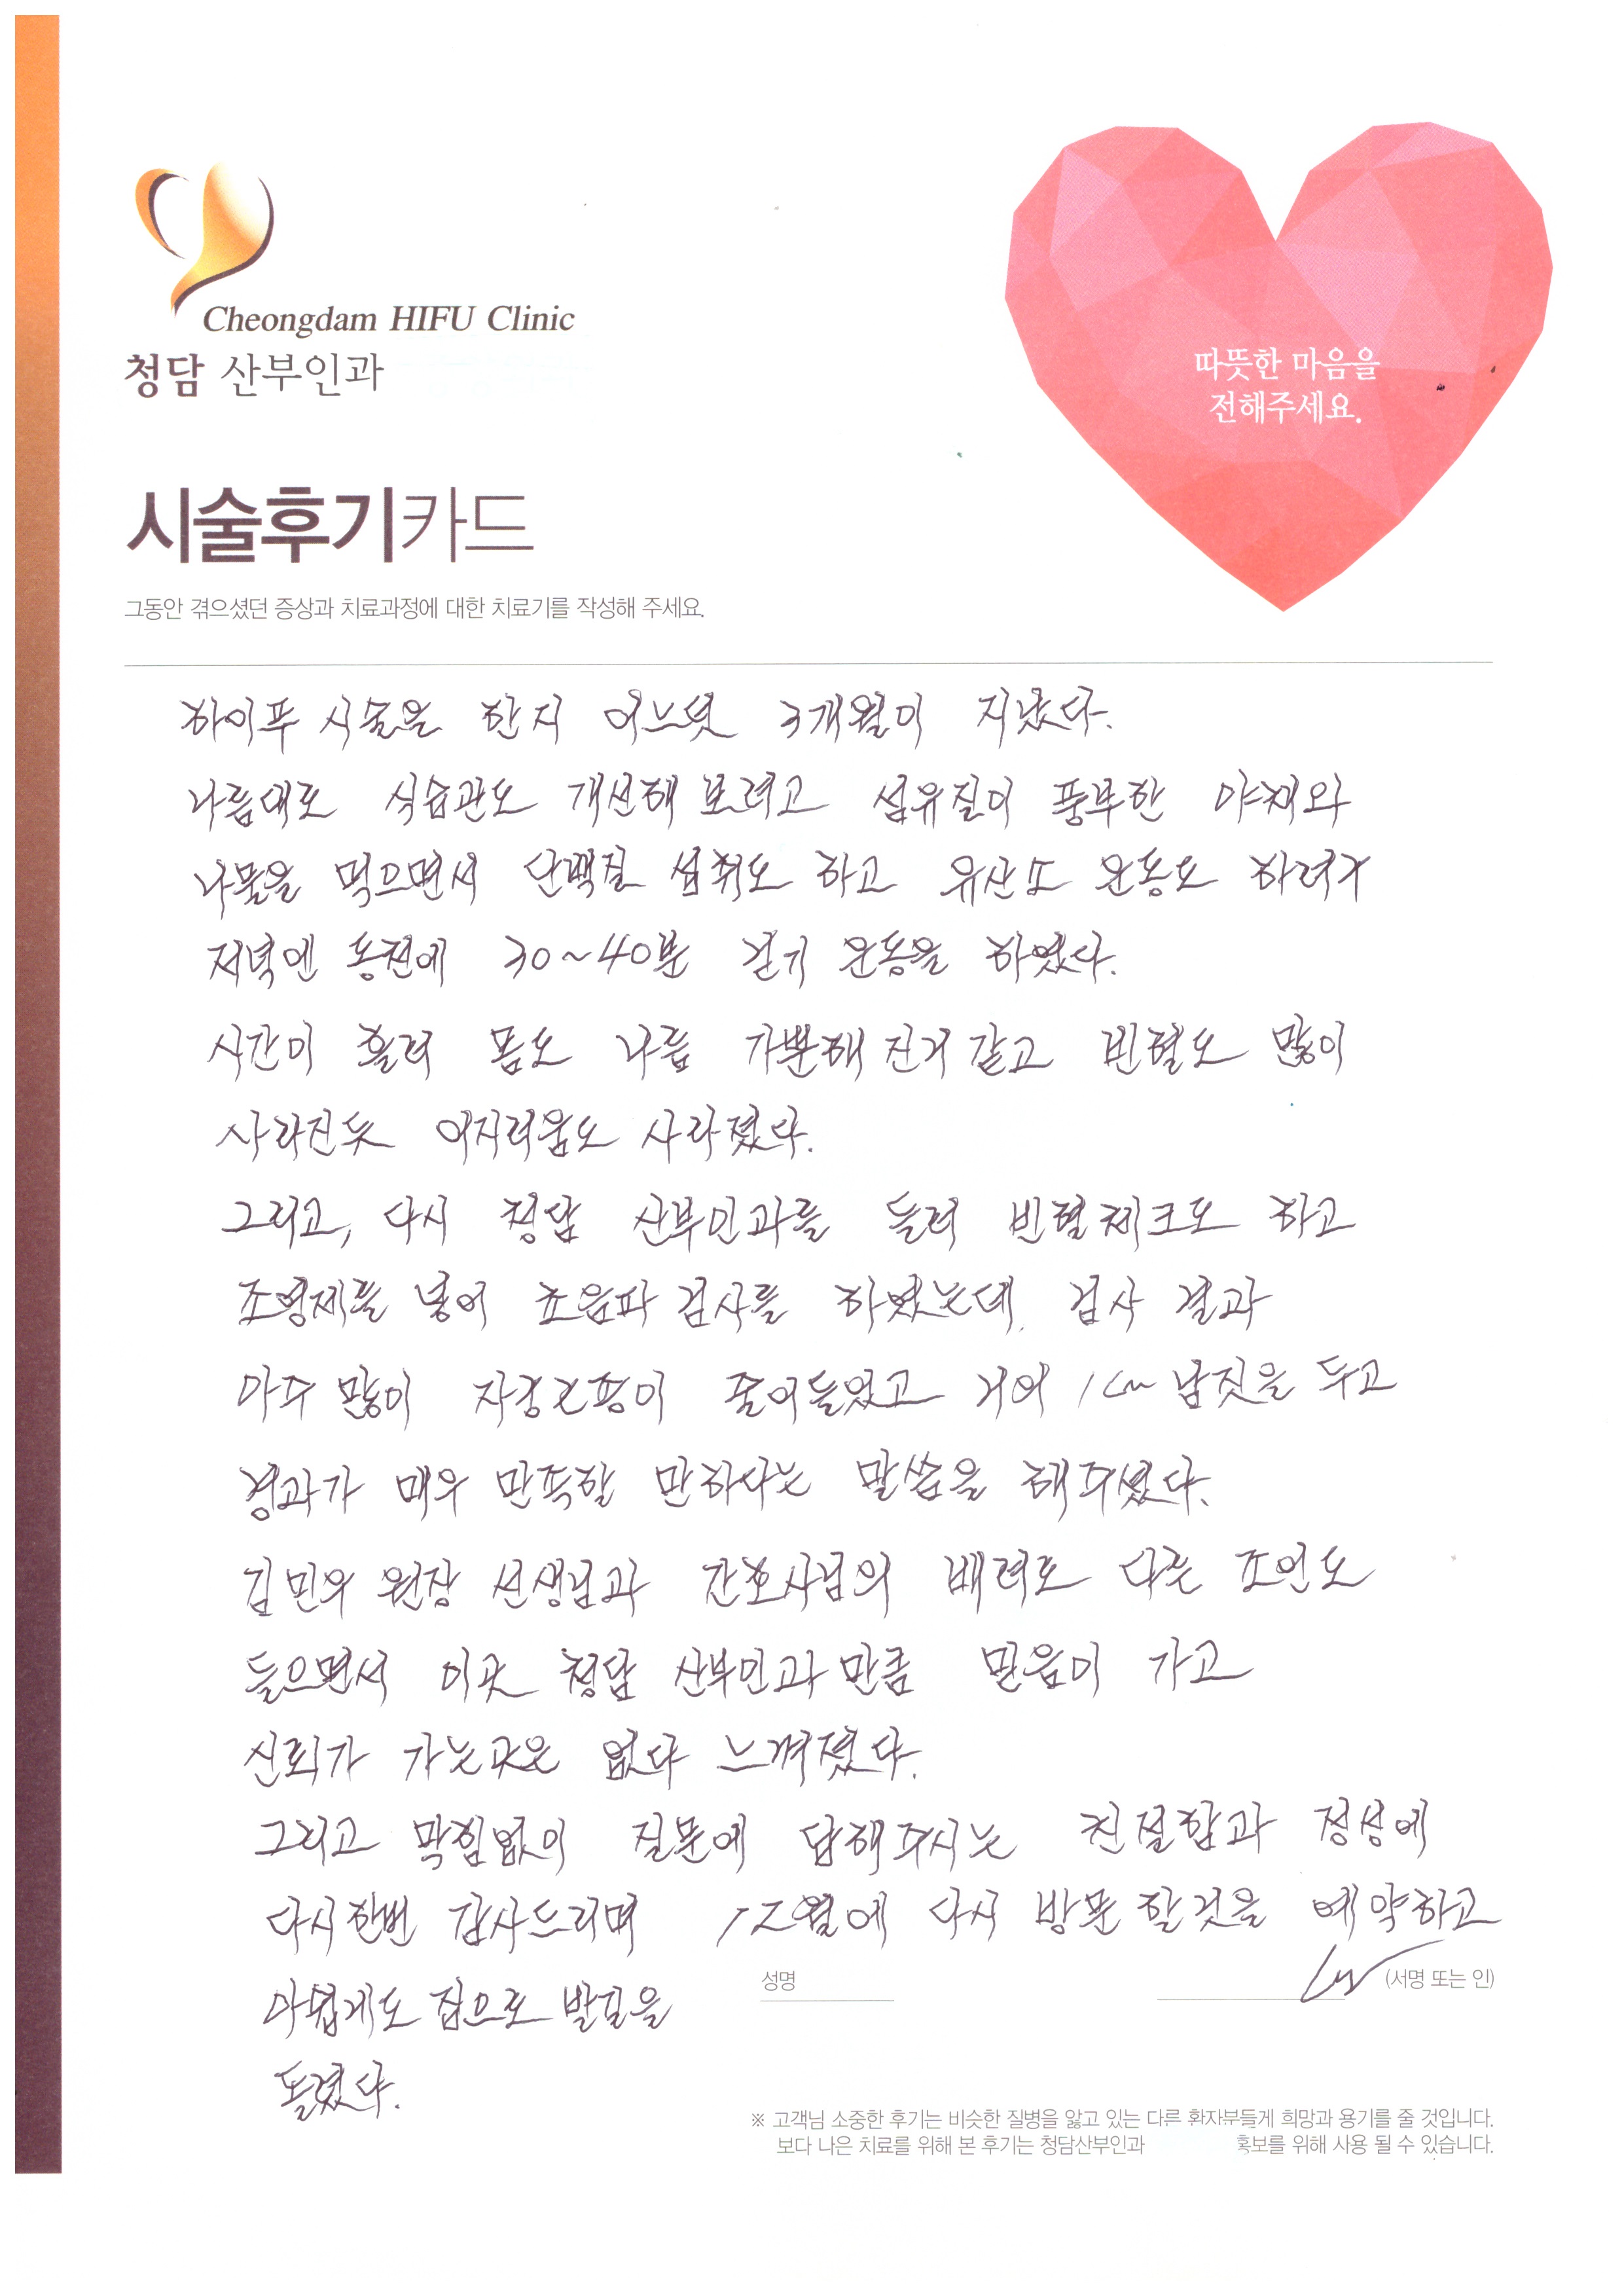 Cheongdam HIFU Clinic
청담 산부인과
따뜻한 마음을
전해주세요.
시술후기카드
그동안 겪으셨던 증상과 치료과정에 대한 치료기를 작성해 주세요.
하이푸 시술을 한지 어느덧 3개월이 지났다.
나름대로 식습관도 개선해 보려고 섬유질이 풍부한 야채와
나물을 먹으면서 단백질 섭취도 하고 유산소 운동도 하려가
저녁엔 동전에 30~40분 걷기 운동을 하였다.
시간이 흘러 몸도 나름 가뿐해 진거 같고 빈혈도 많이
사라진듯 어지러움도 사라졌다.
그리고, 다시 청담 산부인과를 들려 빈혈체크도 하고
조영제를 넣어 초음파 검사를 하였는데, 검사 결과
아주 많이 자궁근종이 줄어들었고 거의 1cm 남짓을 두고
경과가 매우 만족할 만하다는 말씀을 해주셨다.
김민우 원장 선생님과 간호사님의 배려로 다른 조언도
들으면서 이곳 청담 산부인과 만큼 믿음이 가고
신뢰가 가는곳은 없다 느껴졌다.
그리고 막힘없이 질문에 답해주시는 친절함과 정성에
다시한번 감사드리며 12월에 다시 방문 할것을 예약하고
아쉽게도 집으로 발길을
돌렸다.
성명 (서명 또는 인)
※ 고객님 소중한 후기는 비슷한 질병을 앓고 있는 다른 환자부들게 희망과 용기를 줄 것입니다.
보다 나은 치료를 위해 본 후기는 청담산부인과 홍보를 위해 사용 될 수 있습니다.